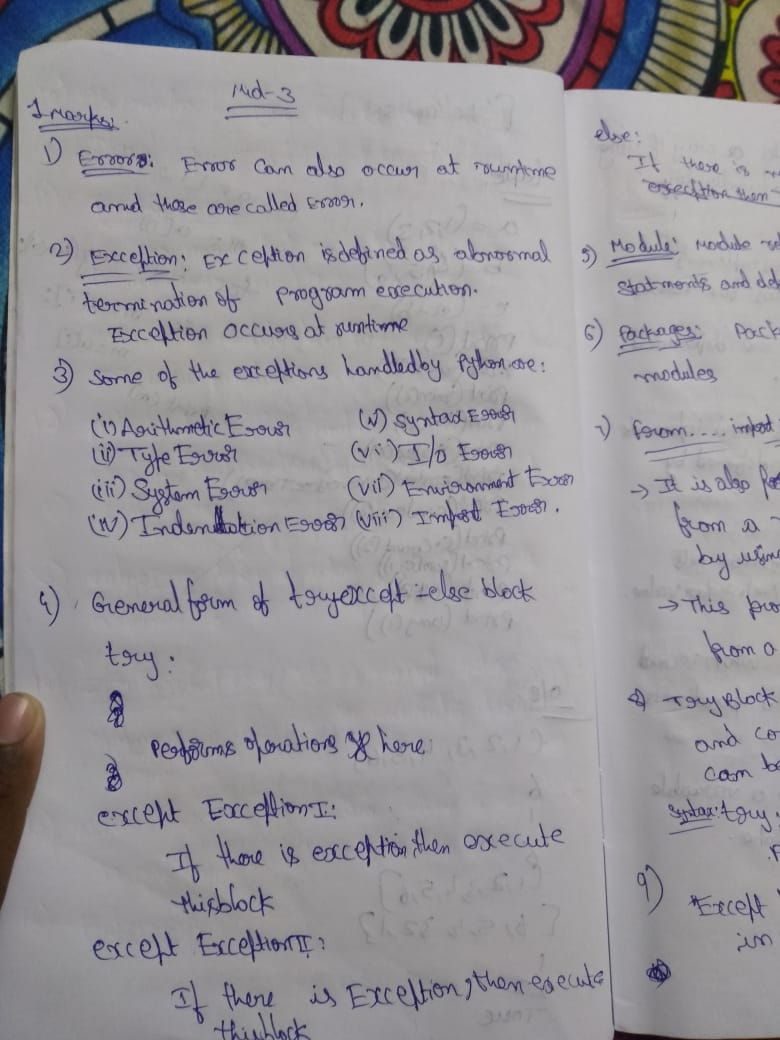 Mid-3
1 marks:
1) Errors: Error can also occur at rountime
and those are called Error.
2) Exception: Exception is defined as abnormal
termination of program execution.
Exception occurs at runtime
3) Some of the exceptions handled by Python are:
(i) Arithmetic Error (v) Syntax Error
(ii) Type Error (vi) I/O Error
(iii) System Error (vii) Environment Error
(iv) Indentation Error (viii) Import Error.
4) General form of try except-else block
try:
Performs operations here:
except Exception I:
If there is exception, then execute
this block
except Exception II:
If there is Exception, then execute
this block
else:
If there is
execution then
5) Module: Module
statments and
6) Packages: Pack
modules
7) from.... import
→ It is also
from a
by using
→ This
from a
8 Try Block
and
can
Syntax: try:
9) Except
in